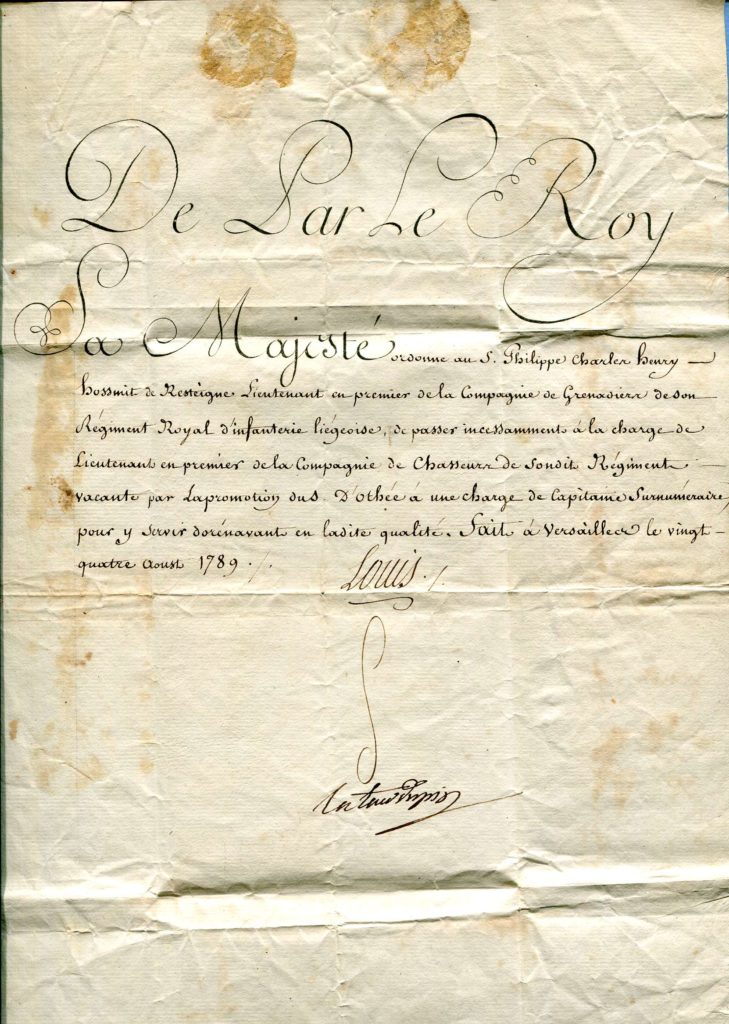 De Par Le Roy
Sa Majesté ordonne au S. Philippe Charles henry
hossmit de Resteigne Lieutenant en premier de la Compagnie de Grenadiers de son
Régiment Royal d'infanterie liégeoise, de passer incessamment à la charge de
Lieutenant en premier de la Compagnie de Chasseurs de sondit Régiment
vacante par Lapromotion du S. D'othée à une charge de Capitaine Surnuméraire,
pour y servir dorénavant en ladite qualité. Fait à Versailles le vingt-
quatre Aoust 1789 ./.
Louis ./.